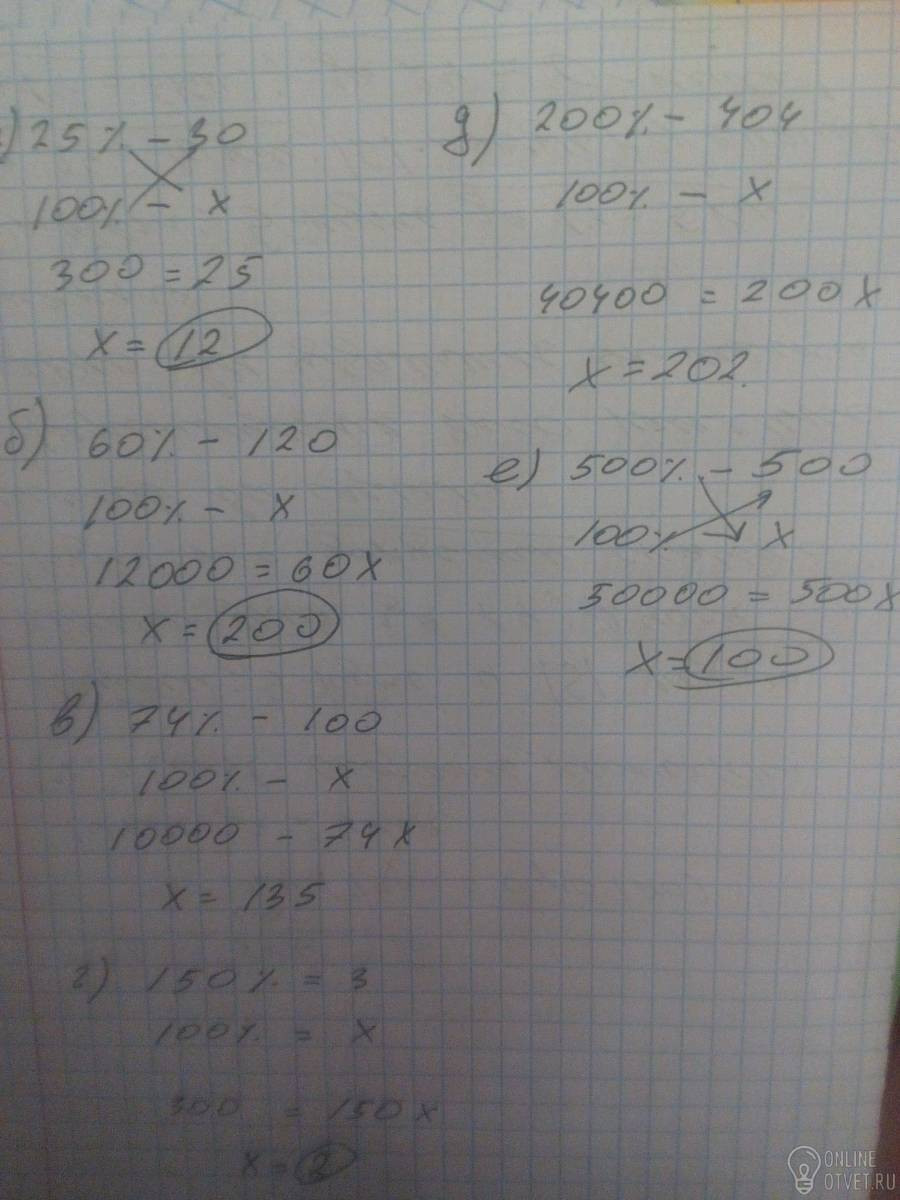 ) 25% - 30
100% - x
300 = 25
x = 12
б) 60% - 120
100% - x
12000 = 60x
x = 200
в) 74% - 100
100% - x
10000 - 74x
x = 135
г) 150% = 3
100% = x
300 = 150x
x = 2
д) 200% - 404
100% - x
40400 = 200x
x = 202.
е) 500% - 500
100% - x
50000 = 500x
x = 100
ONLINE
OTVET.RU